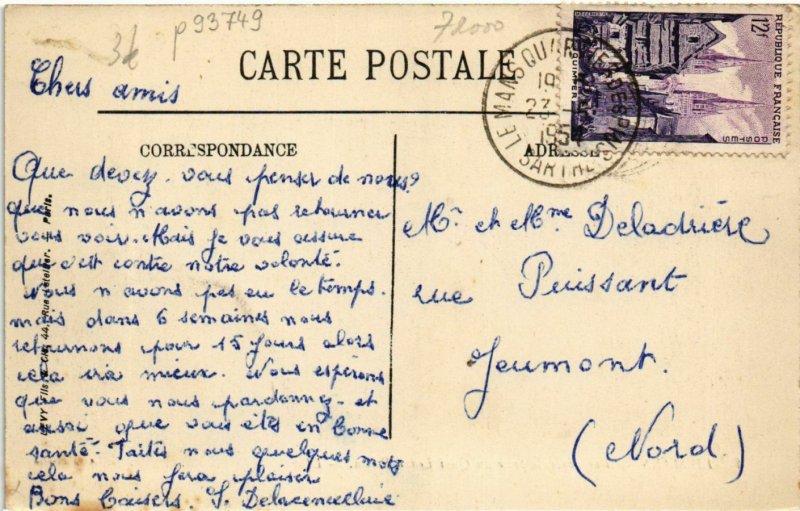 3f p93749 72000
CARTE POSTALE
Chers amis
CORRESPONDANCE
Que devez vous penser de nous?
que nous n'avons pas retourner
vous voir. Mais je vous assure
que c'est contre notre volonté.
Nous n'avons pas eu le temps.
mais dans 6 semaines nous
retournons pour 15 jours alors
cela ira mieux. Nous espérons
que vous nous pardonnez et
aussi que vous êtes en bonne
santé. Faites nous quelques mots
cela nous fera plaisir
Bons baisers.
ADRESSE
Mr et Mme Deladrière
rue Puissant
Jeumont.
(Nord)
RÉPUBLIQUE FRANÇAISE
12f
POSTES
QUIMPER
LE MANS
SARTHE
19
23
44, Rue
Paris.